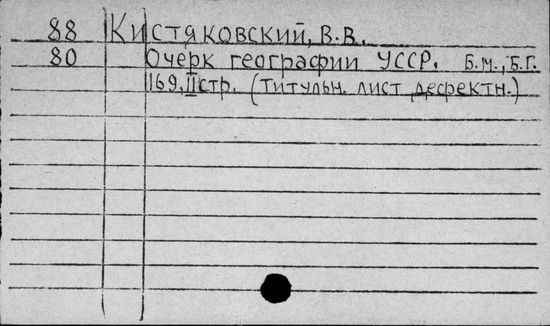 88 Кистяковский, В.В.
80 Очерк географии УССР. Б.м., Б.г.
169, II стр. (титульн. лист дефектн.)